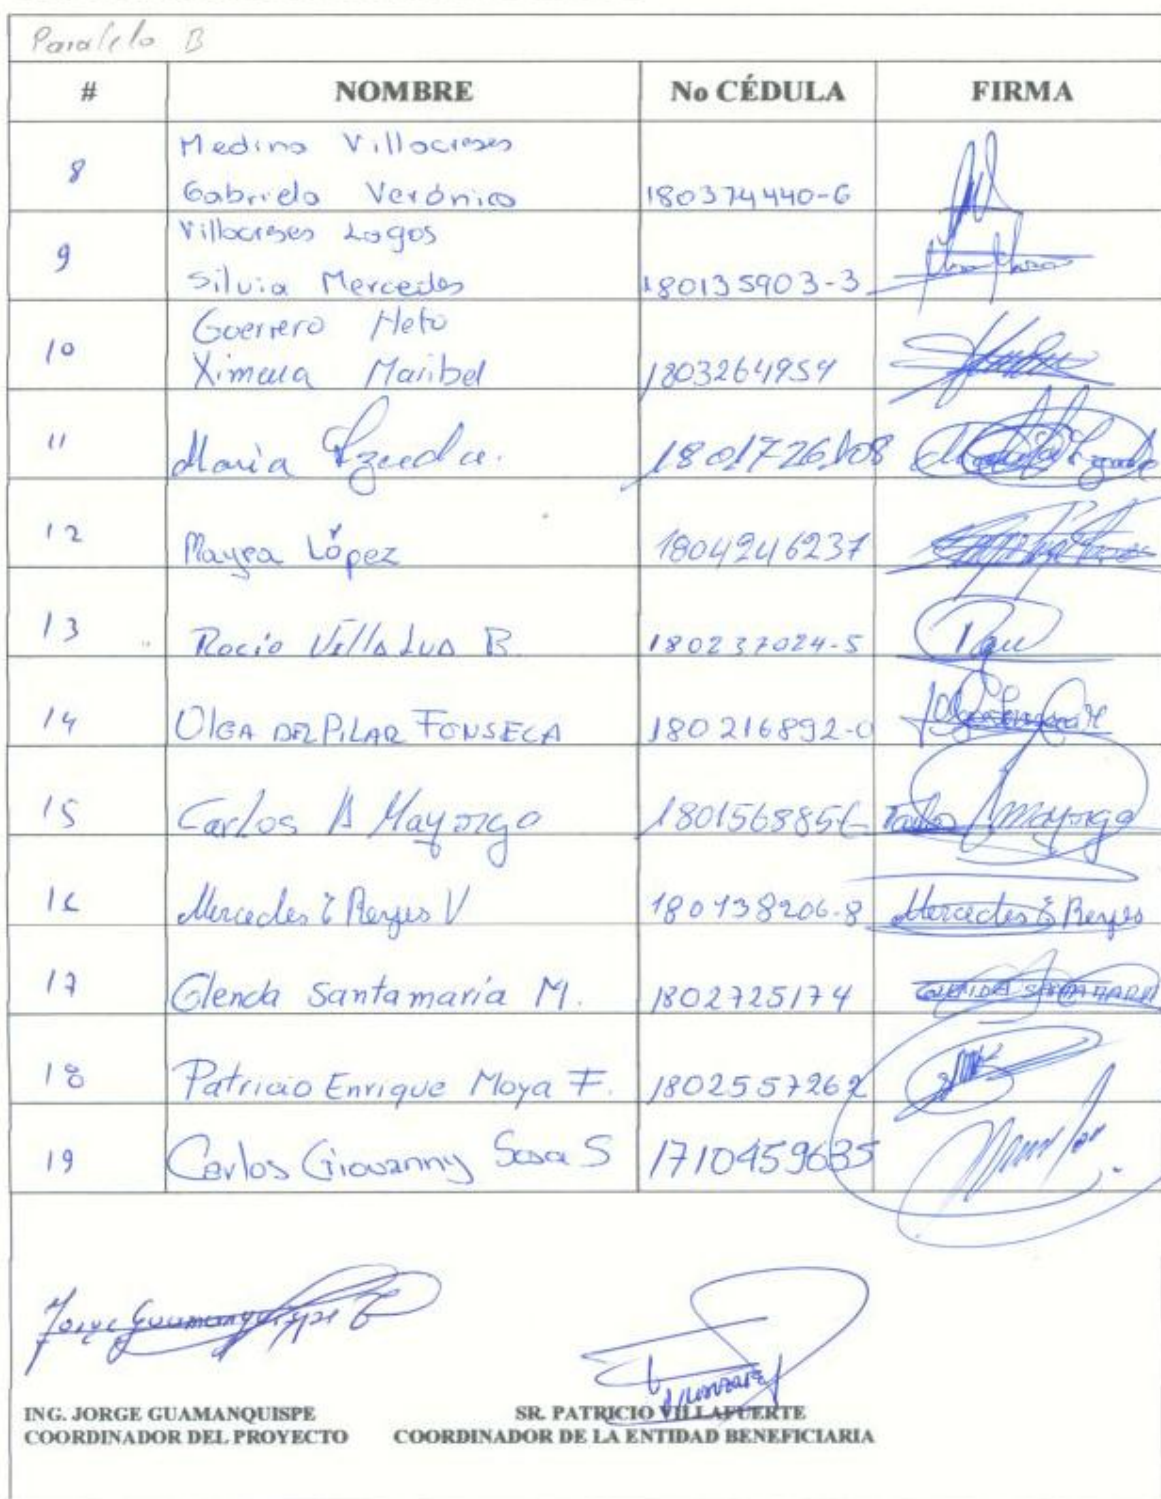 Paralelo B
# NOMBRE No CÉDULA FIRMA
8 Medina Villacreses
Gabriela Verónica 180374440-6
9 Villacreses Lagos
Silvia Mercedes 180135903-3
10 Guerrero Neto
Ximena Maribel 1803264959
11 Maria Izueda. 1801726108
12 Mayra López 1804246237
13 Rocío Villa Lua B. 180237024-5
14 OLGA DEL PILAR FONSECA 180216892-0
15 Carlos A Mayorga 180156885-6 Mayorga
16 Mercedes E Reyes V 180138206-8 Mercedes E Reyes
17 Glenda Santamaría M. 1802725174 GLENDA SANTAMARIA
18 Patricio Enrique Moya F. 1802557262
19 Carlos Giovanny Sosa S 1710459635
Jorge Guamanquispe
ING. JORGE GUAMANQUISPE SR. PATRICIO VILLAFUERTE
COORDINADOR DEL PROYECTO COORDINADOR DE LA ENTIDAD BENEFICIARIA